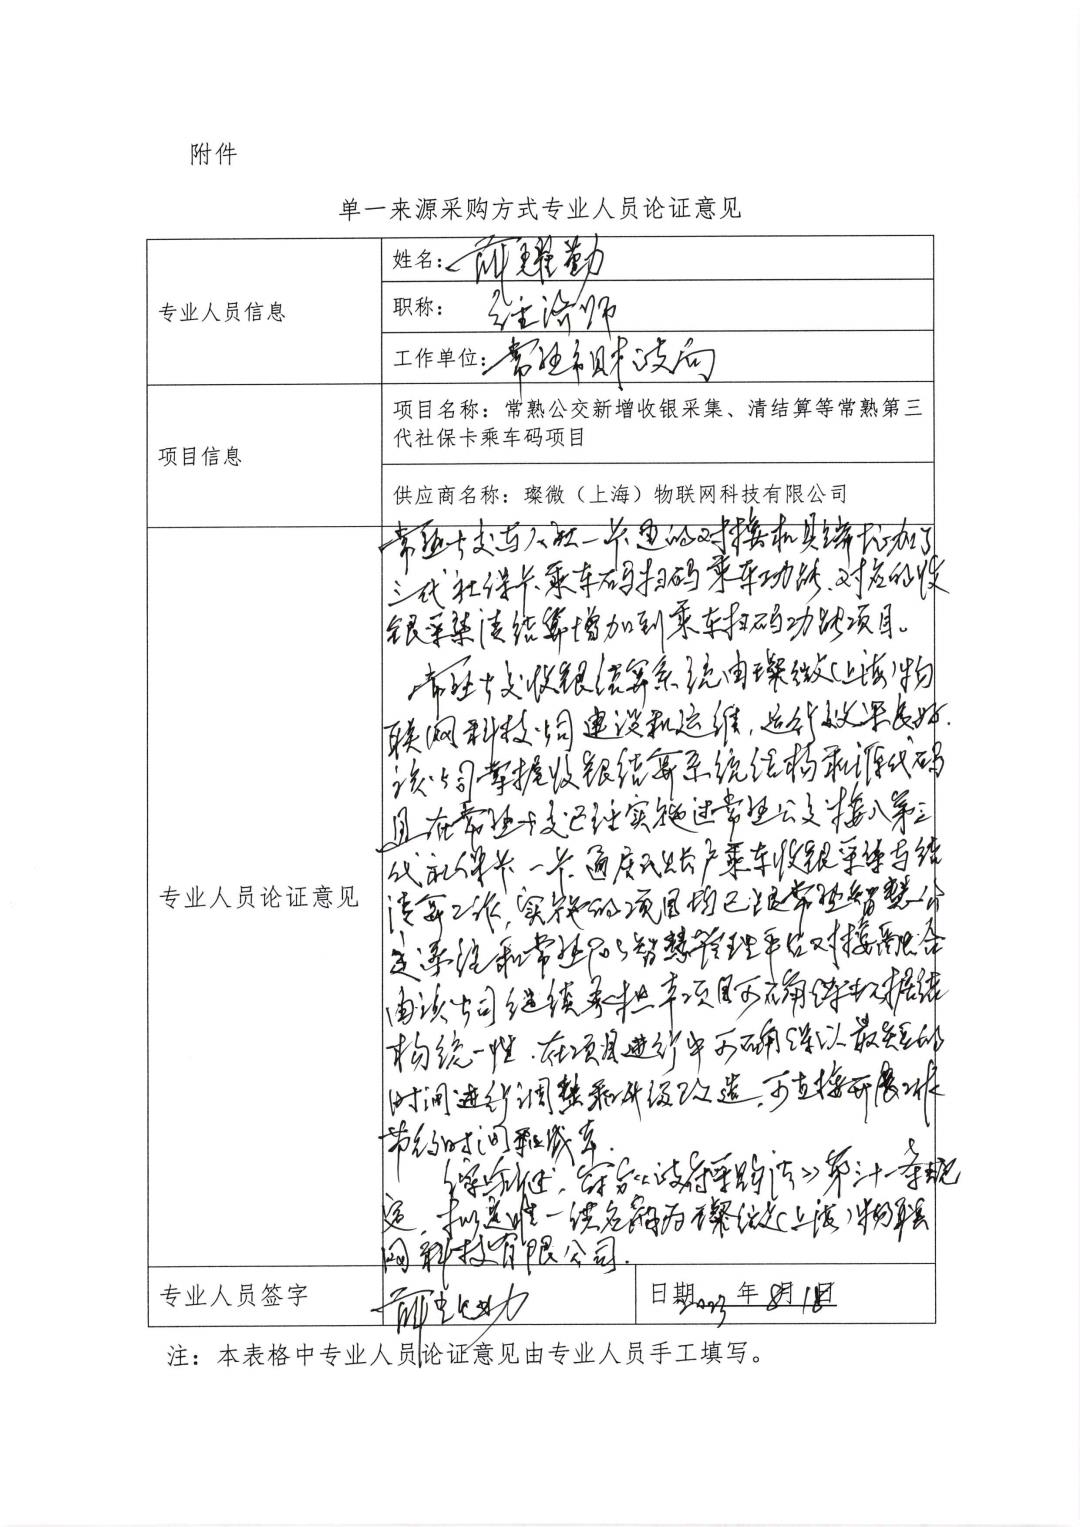 附件
单一来源采购方式专业人员论证意见
专业人员信息
姓名：薛耀勤
职称：经济师
工作单位：常熟市财政局
项目信息
项目名称：常熟公交新增收银采集、清结算等常熟第三
代社保卡乘车码项目
供应商名称：璨微（上海）物联网科技有限公司
专业人员论证意见
常熟公交与人社一卡通的对接机具端增加了
三代社保卡乘车码扫码乘车功能、对应的收
银采集清结算增加到乘车扫码功能项目。
常熟公交收银结算系统由璨微（上海）物
联网科技公司建设和运维，运行效果良好.
该公司掌握收银结算系统结构和源代码
且在常熟公交已经实施过常熟公交接入第三
代社保卡一卡通 账户乘车收银采集与结
清算工作，实施的项目均已跟常熟智慧公
交系统和常熟 智慧管理平台对接
由该公司继续承担本项目可确保数据结
构统一性.在项目进行中可确保以最短的
时间进行调整和升级改造，可直接开展工作
节约时间和成本.
综上所述，符合《政府采购法》第三十一条规
定，拟定唯一供应商为璨微（上海）物联
网科技有限公司.
专业人员签字
薛耀勤
日期2023年8月18日
注：本表格中专业人员论证意见由专业人员手工填写。